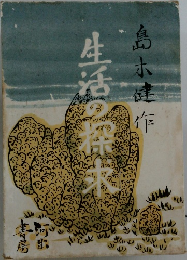 島木健作
生活の探求
河出
書房